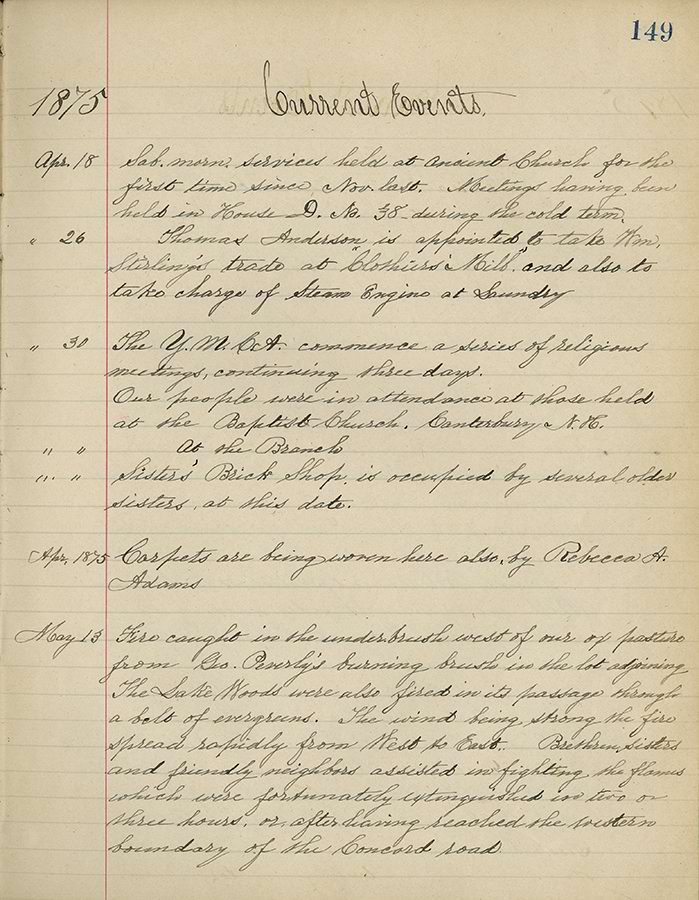 149
1875 Current Events.
Apr. 18 Sab. morn. services held at Ancient Church for the
first time since Nov. last. Meetings having been
held in House D. No. 38 during the cold term.
" 26 Thomas Anderson is appointed to take Wm.
Stirling's trade at "Clothiers' Mill" and also to
take charge of Steam Engine at Laundry
" 30 The Y.M.C.A. commence a series of religious
meetings, continuing three days.
Our people were in attendance at those held
at the Baptist Church, Canterbury N.H.
" " At the Branch
" " Sisters' Brick Shop, is occupied by several older
sisters, at this date.
Apr. 1875 Carpets are being woven here also, by Rebecca A.
Adams
May 13 Fire caught in the underbrush west of our ox pasture
from Geo. Peverly's burning brush in the lot adjoining
The Lake Woods were also fired in its passage through
a belt of evergreens. The wind being strong the fire
spread rapidly from West to East. Brethren, sisters
and friendly neighbors assisted in fighting the flames
which were fortunately extinguished in two or
three hours, or, after having reached the western
boundary of the Concord road